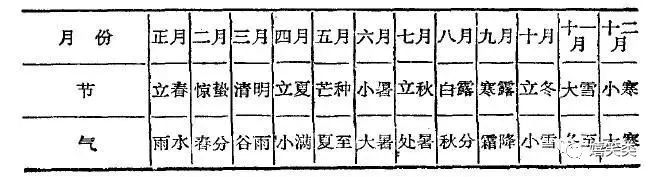 月份 正月 二月 三月 四月 五月 六月 七月 八月 九月 十月 十一月 十二月
节 立春 惊蛰 清明 立夏 芒种 小暑 立秋 白露 寒露 立冬 大雪 小寒
气 雨水 春分 谷雨 小满 夏至 大暑 处暑 秋分 霜降 小雪 冬至 大寒